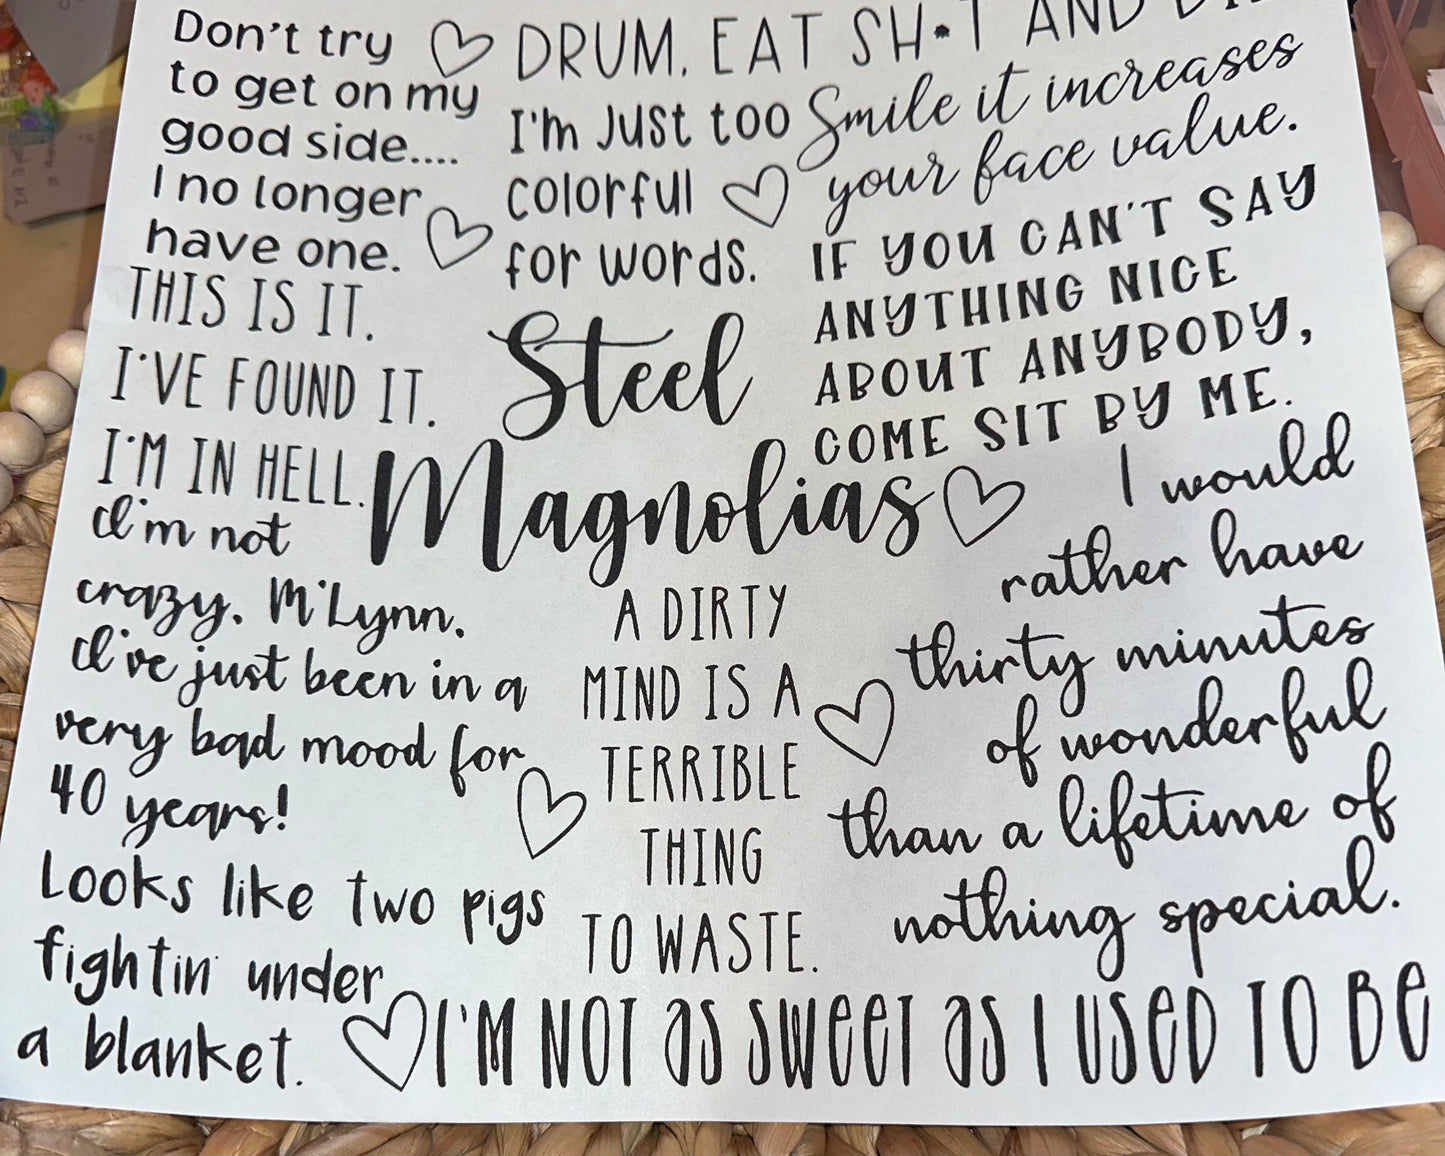 Don't try
to get on my
good side....
I no longer
have one.
DRUM, EAT SH•T AND
I'm Just too
colorful
for words.
Smile it increases
your face value.
IF YOU CAN'T SAY
ANYTHING NICE
ABOUT ANYBODY,
COME SIT BY ME.
THIS IS IT.
I'VE FOUND IT.
I'M IN HELL.
Steel
Magnolias
I'm not
crazy, M'Lynn.
I've just been in a
very bad mood for
40 years!
A DIRTY
MIND IS A
TERRIBLE
THING
TO WASTE.
I would
rather have
thirty minutes
of wonderful
than a lifetime of
nothing special.
Looks like two pigs
fightin' under
a blanket.
I'M NOT as sweet as I used TO Be